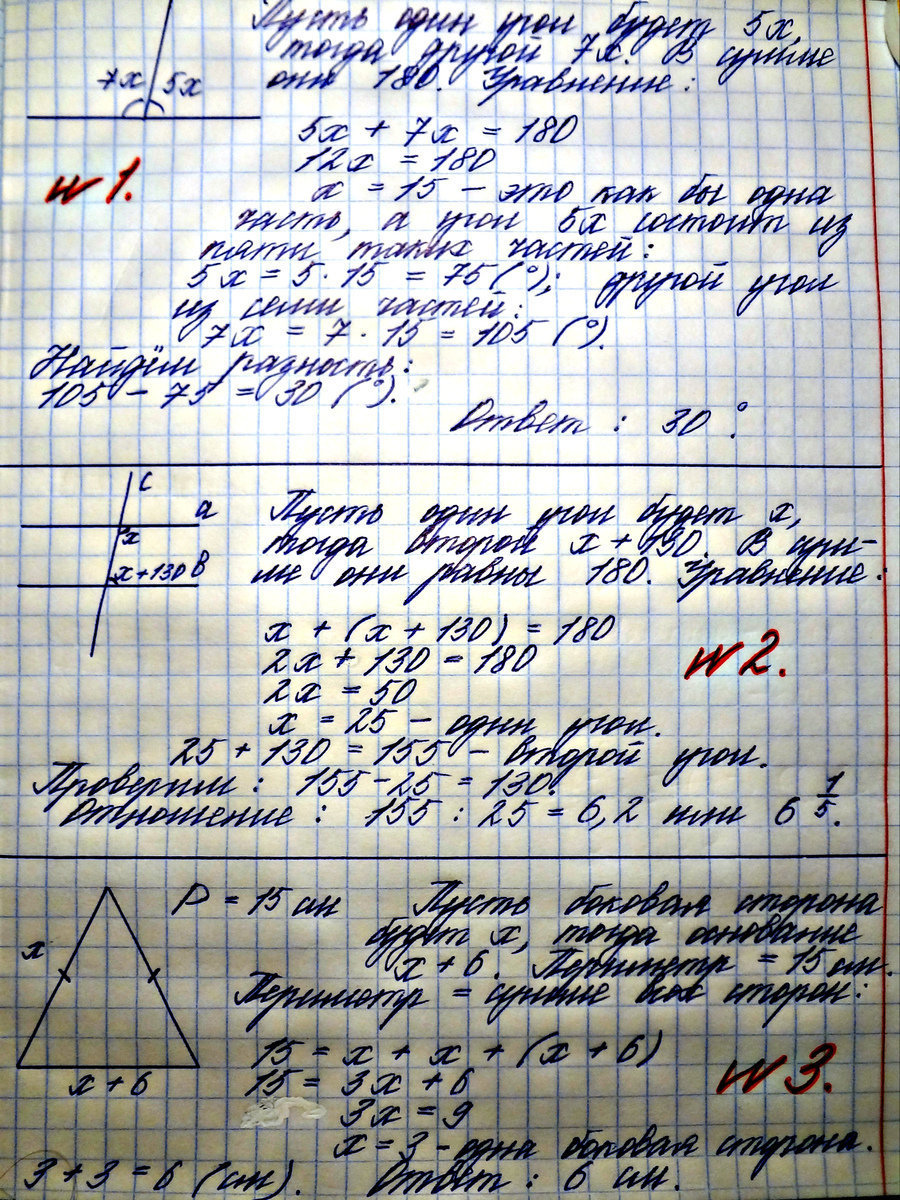 Пусть один угол будет 5х,
тогда другой 7х. В сумме
они 180. Уравнение:
7х 5х
5х + 7х = 180
12х = 180
№1.
х = 15 – это как бы одна
часть, а угол 5х состоит из
пяти таких частей:
5х = 5 · 15 = 75 (°); другой угол
из семи частей:
7х = 7 · 15 = 105 (°).
Найдём разность:
105 – 75 = 30 (°).
Ответ: 30°.
с
а
х
х+130 в
Пусть один угол будет х,
тогда второй х + 130. В сум-
ме они равны 180. Уравнение:
х + (х + 130) = 180
2х + 130 = 180
№2.
2х = 50
х = 25 – один угол.
25 + 130 = 155 – второй угол.
Проверим: 155 – 25 = 130.
Отношение: 155 : 25 = 6,2 или 6 1/5.
Р = 15 см Пусть боковая сторона
х
будет х, тогда основание
х + 6. Периметр = 15 см.
Периметр = сумме всех сторон:
15 = х + х + (х + 6)
х + 6
15 = 3х + 6
№3.
3х = 9
х = 3 – одна боковая сторона.
3 + 3 = 6 (см). Ответ: 6 см.